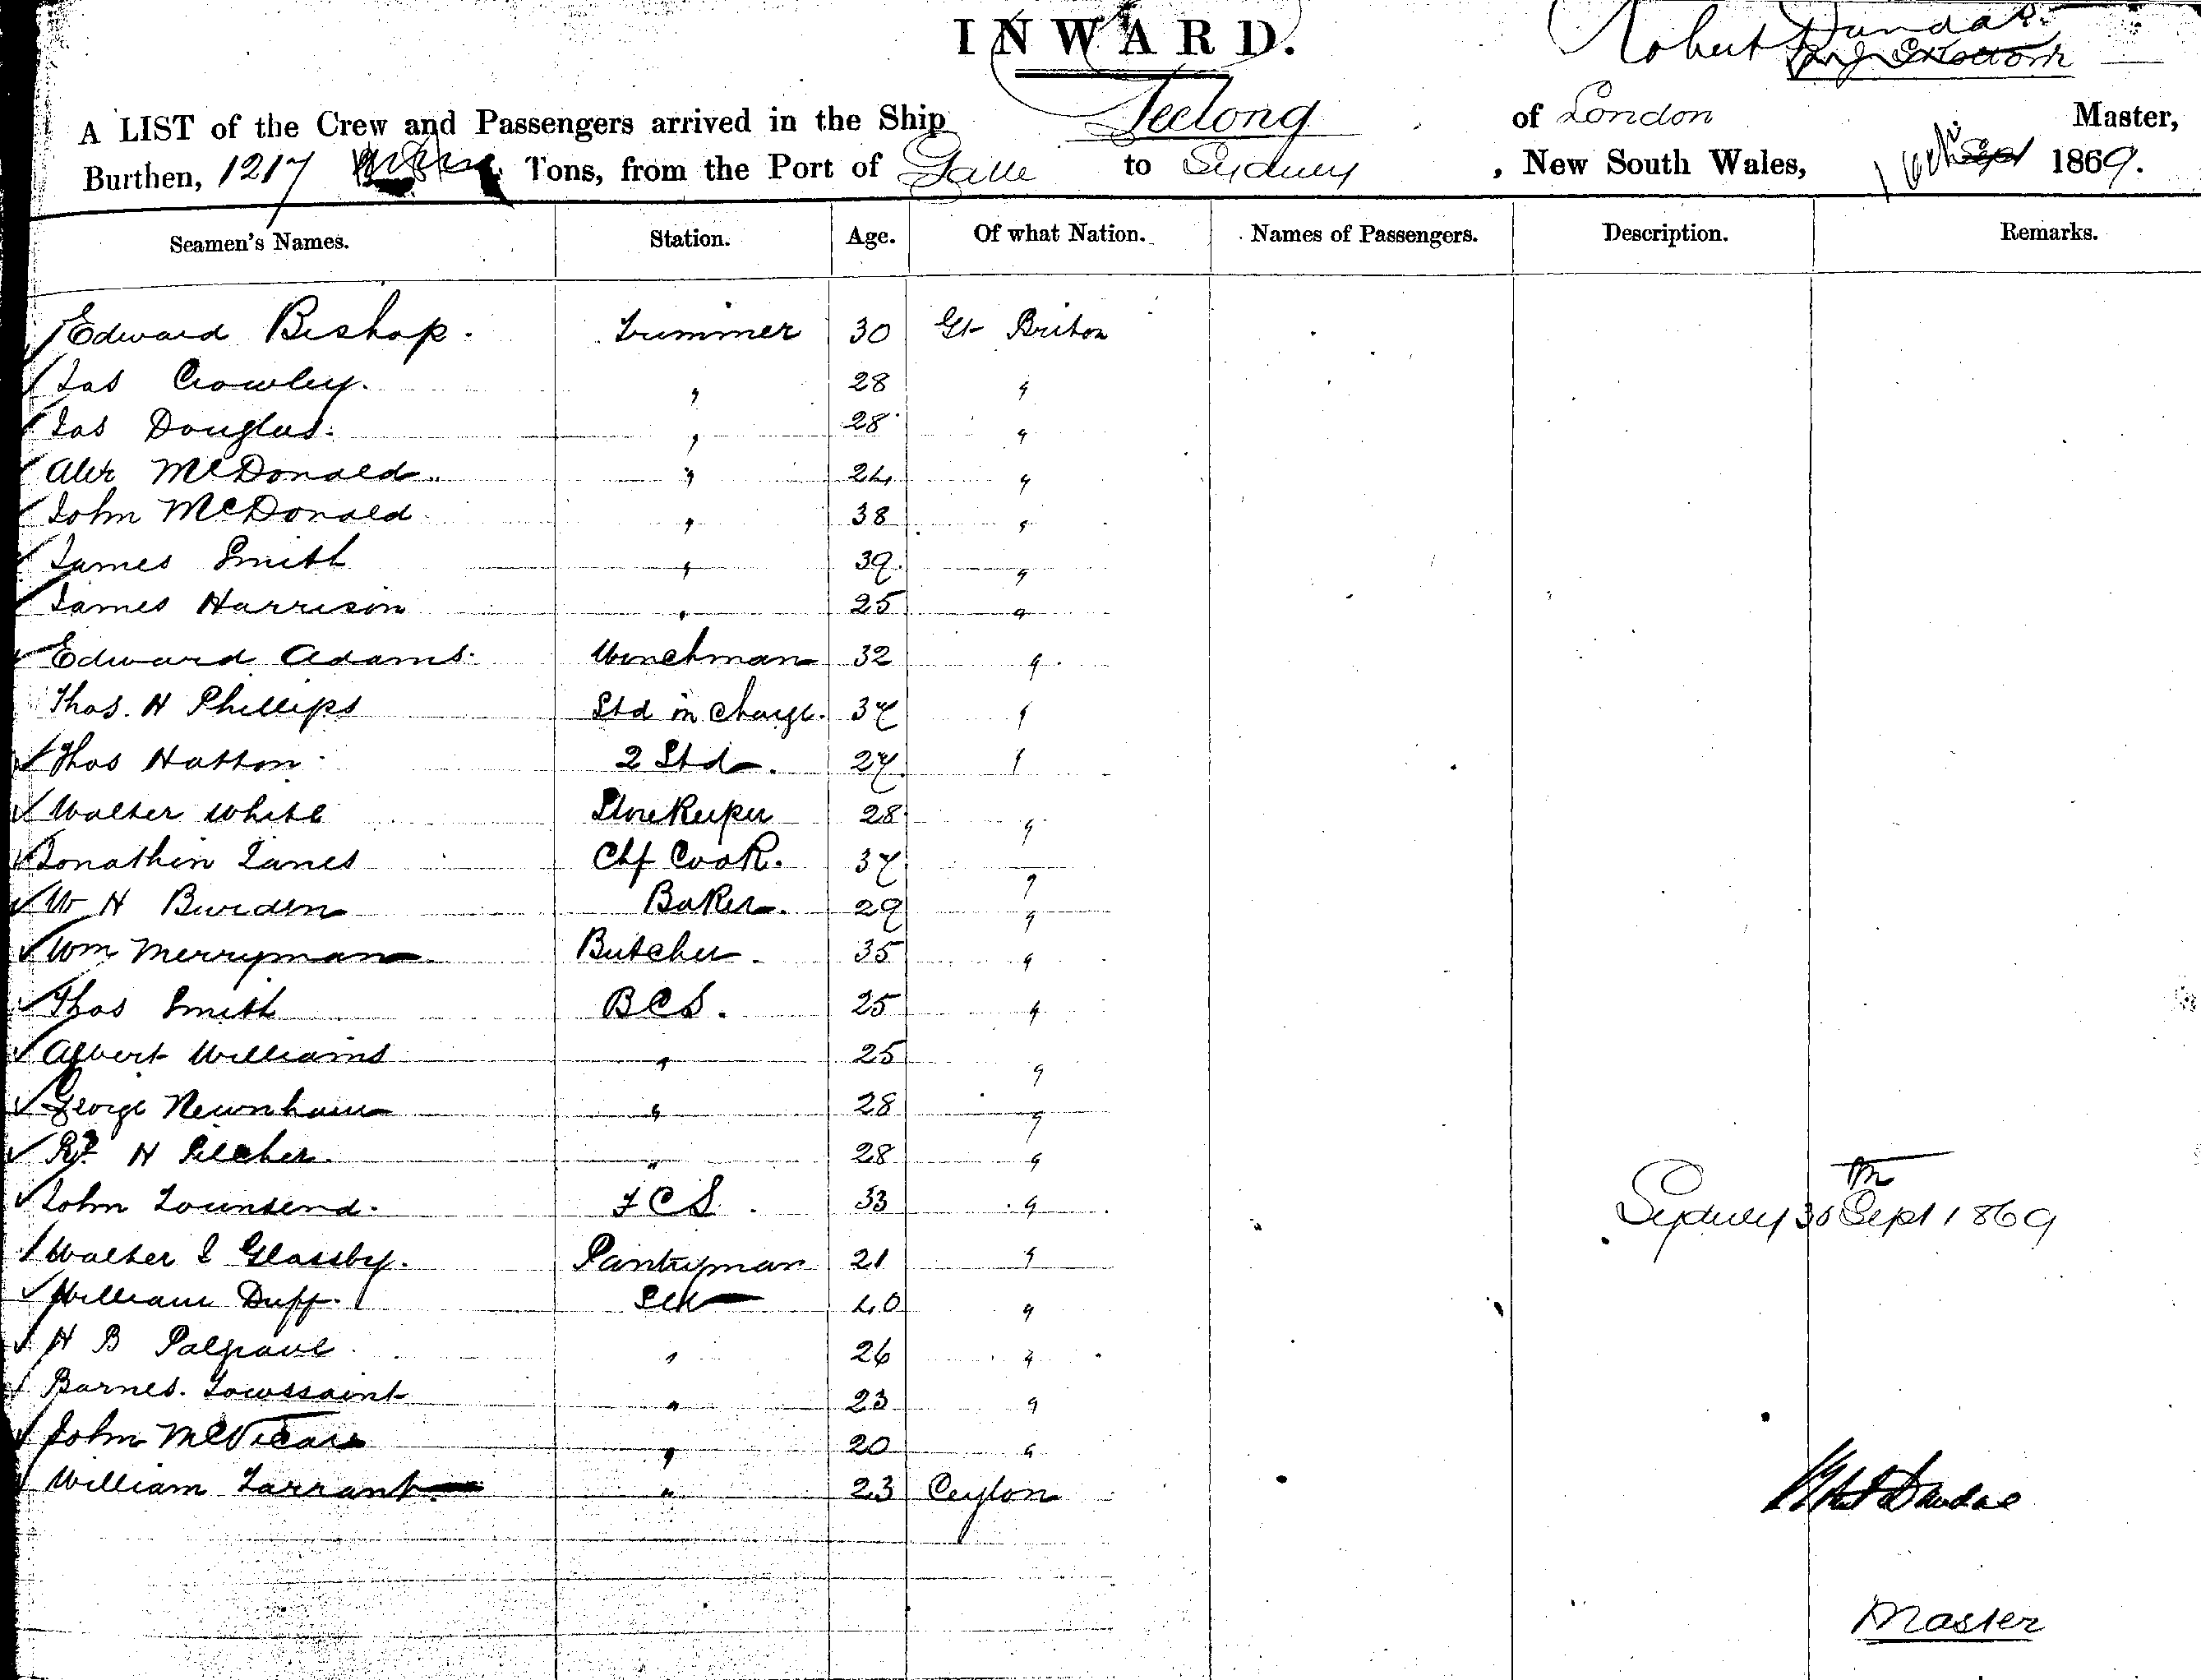 INWARD.
Robert Dundas
A LIST of the Crew and Passengers arrived in the Ship Geelong of London Master,
Burthen, 1217 Tons, from the Port of Galle to Sydney, New South Wales, 1869.
Seamen's Names. Station. Age. Of what Nation. Names of Passengers. Description. Remarks.
Edward Bishop. Trimmer 30 Gt Briton
Jas Crowley. " 28 "
Jas Douglas. " 28 "
Alex McDonald " 24 "
John McDonald " 38 "
James Smith " 39 "
James Harrison " 25 "
Edward Adams. Winchman 32 "
Thos. H Phillips Std in charge. 37 "
Thos Hatton 2 Std. 27 "
Walter White Storekeeper 28 "
Jonathin Janes Chf Cook. 37 "
W H Burden Baker. 29 "
Wm Merryman Butcher 35 "
Thos Smith B C S. 25 "
Albert Williams " 25 "
George Newnham " 28 "
H Pilcher. " 28 "
John Townsend. F C S. 33 "
Walter J Glassby. Pantryman 21 "
William Duff. 40 "
H B Palgrave " 26 "
Barnes. Towssaint " 23 "
John McVicars " 20 "
William Tarrant " 23 Ceylon
Sydney 30 Sept 1869
Robt Dundas
Master